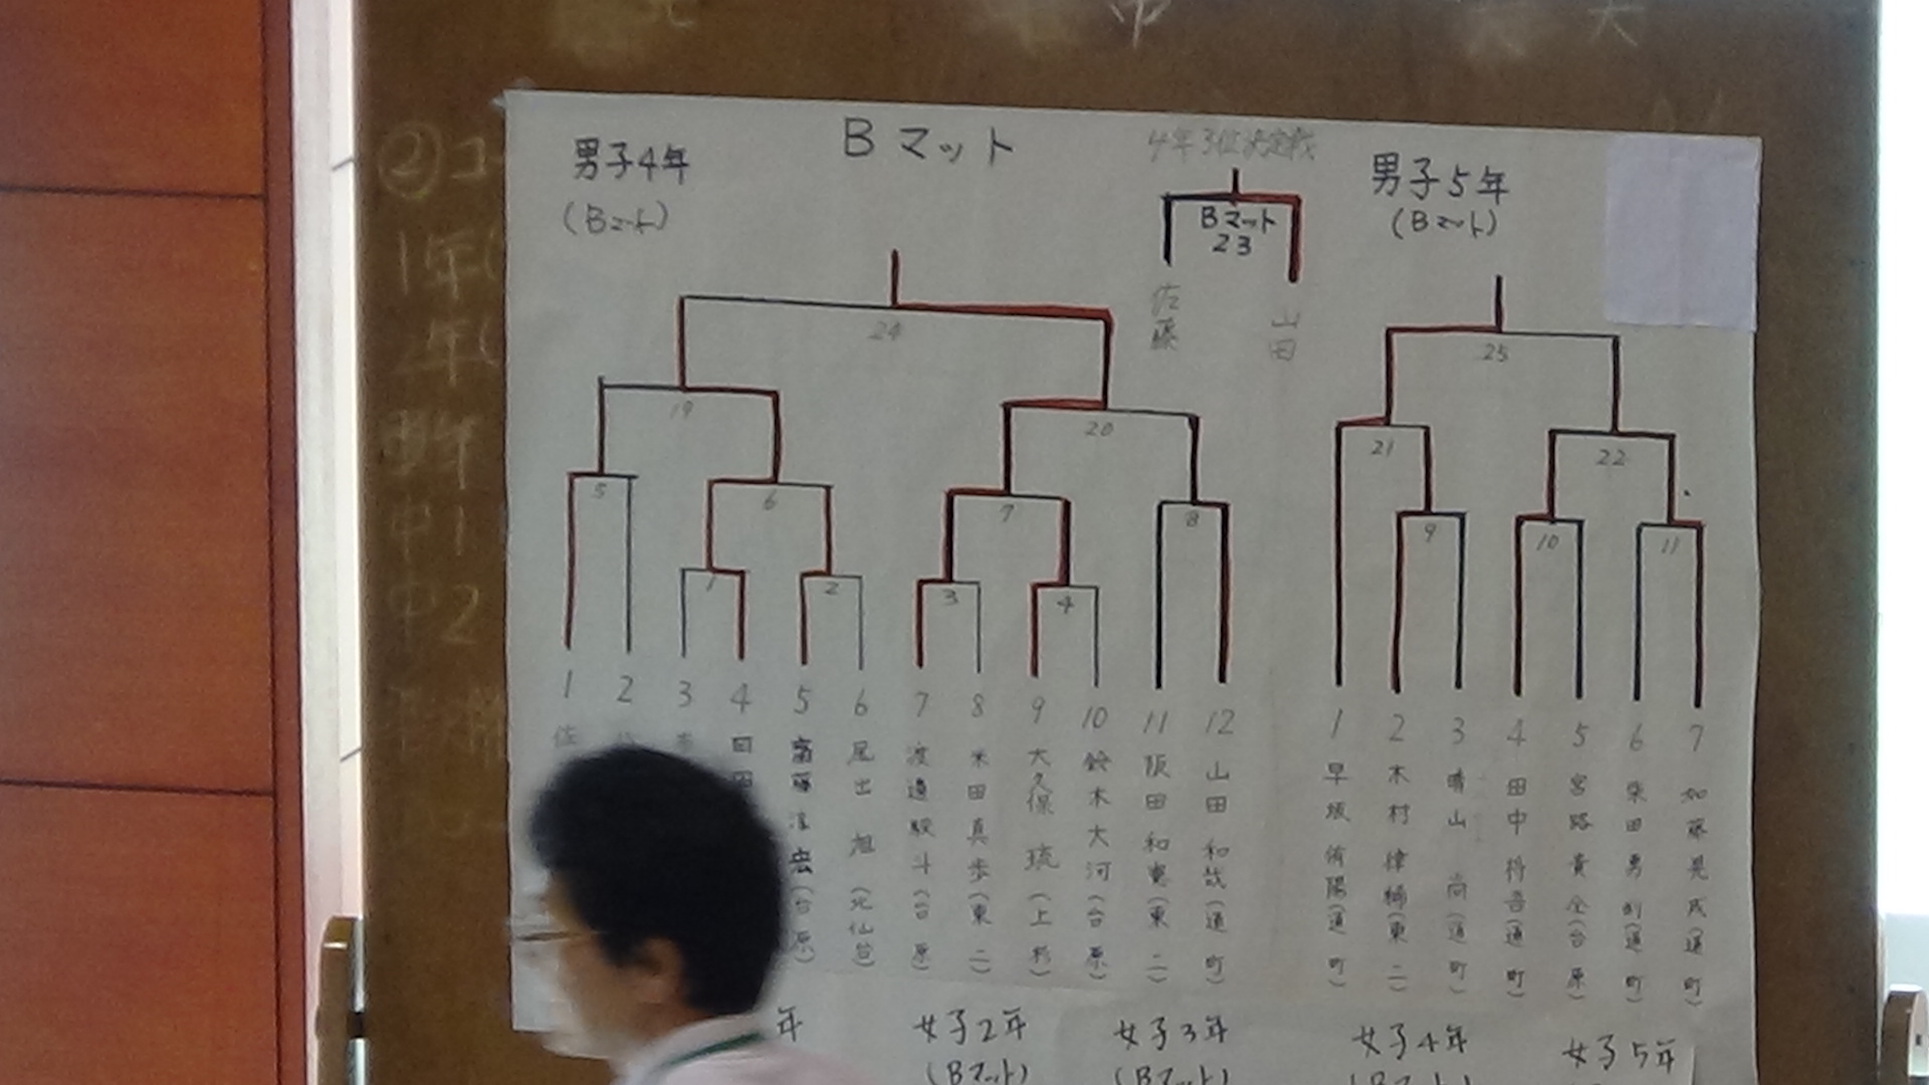 Bマット
男子4年
(Bマット)
4年3位決定戦
Bマット
23
佐藤
山田
男子5年
(Bマット)
24
25
19
20
21
22
5
6
7
8
9
10
11
1
2
3
4
1 2 3 4 5 6 7 8 9 10 11 12
1 2 3 4 5 6 7
佐
(台原)
尾出 旭
渡邉駿斗(台原)
米田真歩(東二)
大久保 琉(上杉)
鈴木大河(台原)
阪田和恵(東二)
山田和哉(通町)
早坂侑陽(通町)
木村律
(東二)
晴山 尚(通町)
田中将吾(通町)
宮路貴
(台原)
柴田勇
(通町)
加藤晃成(通町)
年
女子2年
(Bマット)
女子3年
(Bマット)
女子4年
女子5年
②コ
1年(
年(
年
中1
中2